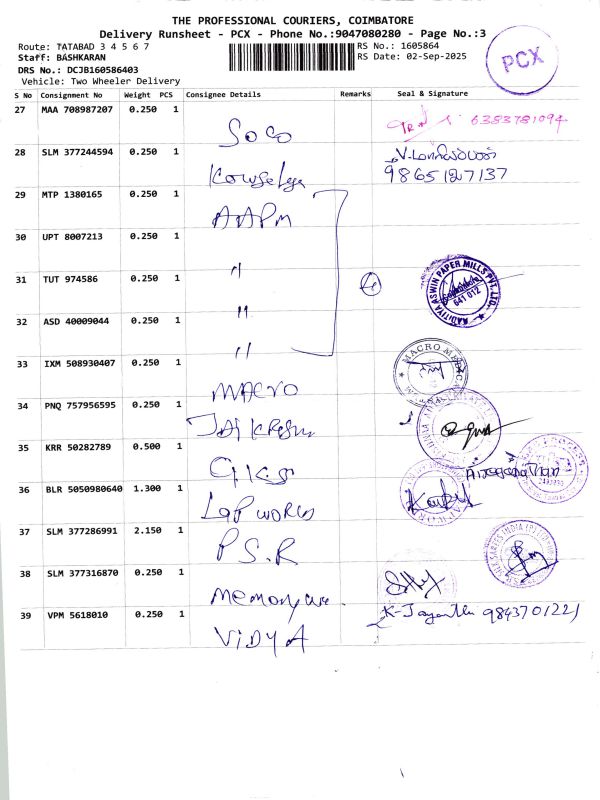 THE PROFESSIONAL COURIERS, COIMBATORE
Delivery Runsheet - PCX - Phone No.:9047080280 - Page No.:3
Route: TATABAD 3 4 5 6 7
RS No.: 1605864
Staff: BASHKARAN
RS Date: 02-Sep-2025
PCX
DRS No.: DCJB160586403
Vehicle: Two Wheeler Delivery
S No Consignment No Weight PCS Consignee Details Remarks Seal & Signature
27 MAA 708987207 0.250 1
SOCO
6383781094
28 SLM 377244594 0.250 1
9865127137
29 MTP 1380165 0.250 1
AAPM
30 UPT 8007213 0.250 1
"
31 TUT 974586 0.250 1
" 4
AADITIYA ASWIN PAPER MILLS PVT. LTD.
641 012
32 ASD 40009044 0.250 1
"
33 IXM 508930407 0.250 1
MACRO
MACRO
34 PNQ 757956595 0.250 1
35 KRR 50282789 0.500 1
36 BLR 5050980640 1.300 1
Lap world
37 SLM 377286991 2.150 1
P.S.R
38 SLM 377316870 0.250 1
Memory
39 VPM 5618010 0.250 1
K-Jayanthi 9843701221
VIDYA